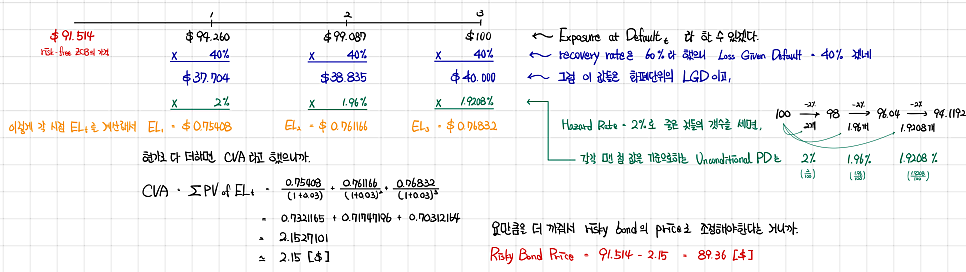 1 2 3
$91.514 $94.260 $99.087 $100 ← Exposure at Default t 라 할 수 있겠다.
risk-free ZCB의 가격
× 40% × 40% × 40% ← recovery rate은 60%라 했으니 Loss Given Default = 40% 겠네
$37.704 $38.835 $40.000 ← 그럼 이 값들은 화폐단위의 LGD이고,
× 2% × 1.96% × 1.9208%
-2% -2% -2%
100 → 98 → 96.04 → 94.1192
2개 1.96개 1.9208개
이렇게 각 시점 ELt를 계산해서 EL₁ = $0.75408 EL₂ = $0.761166 EL₃ = $0.76832
Hazard Rate = 2%로 줄은 것들의 갯수를 세면,
각각 맨 첨 값을 기준으로하는 Unconditional PD는 2% 1.96% 1.9208%
현가로 다 더하면 CVA라고 했으니까.
CVA = ∑ PV of ELt = 0.75408/(1+0.03) + 0.761166/(1+0.03)² + 0.76832/(1+0.03)³
= 0.7321165 + 0.71747196 + 0.70312164
= 2.1527101
≃ 2.15 [$]
요만큼은 더 까줘서 risky bond의 price로 조정해야한다는 거니까.
Risky Bond Price = 91.514 - 2.15 = 89.36 [$]